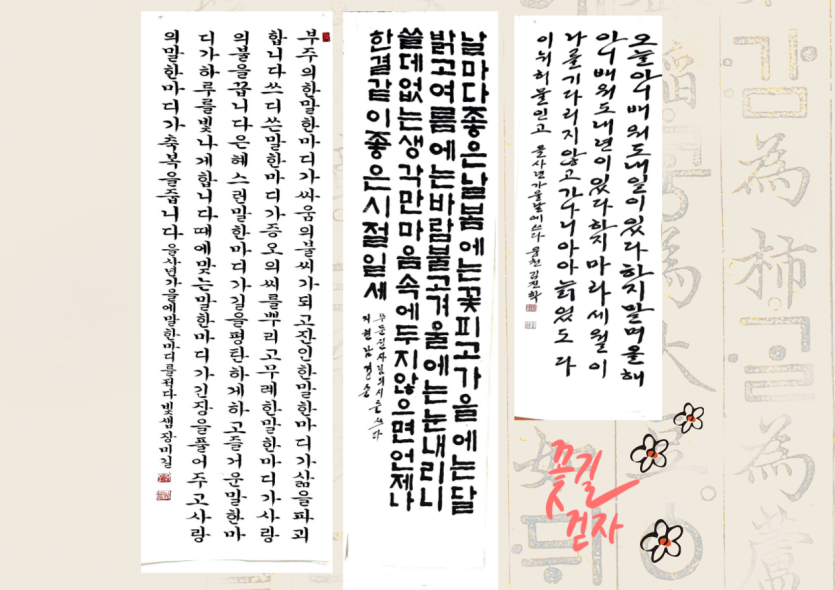 부주의한말한마디가싸움의불씨가되고잔인한말한마디가삶을파괴
합니다쓰디쓴말한마디가증오의씨를뿌리고무례한말한마디가사랑
의불을끕니다은혜스런말한마디가길을평탄하게하고즐거운말한마
디가하루를빛나게합니다때에맞는말한마디가긴장을풀어주고사랑
의말한마디가축복을줍니다 을사년가을에말한마디를적다빛샘장미길
날마다좋은날봄에는꽃피고가을에는달
밝고여름에는바람불고겨울에는눈내리니
쓸데없는생각만마음속에두지않으면언제나
한결같이좋은시절일세
무문선사님의시를쓰다
오늘아니배워도내일이있다하지말며올해
아니배워도내년이있다하지마라세월이
나를기다리지않고가나니아아늙었도다
이뉘허물인고 을사년가을날에쓰다
꽃길
걷자